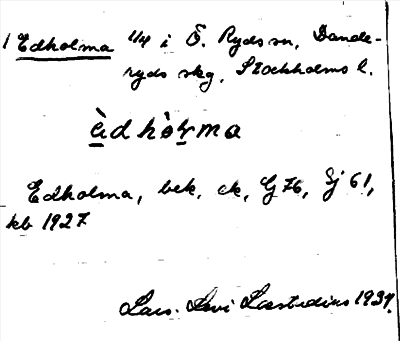 1 Edholma 1/4 i Ö. Ryds sn, Dande-
ryds skg, Stockholms l.
èdhòlma
Edholma, bek. ck, G 76, Sj 61,
kb 1927
Lars Levi Læstadius 1937.